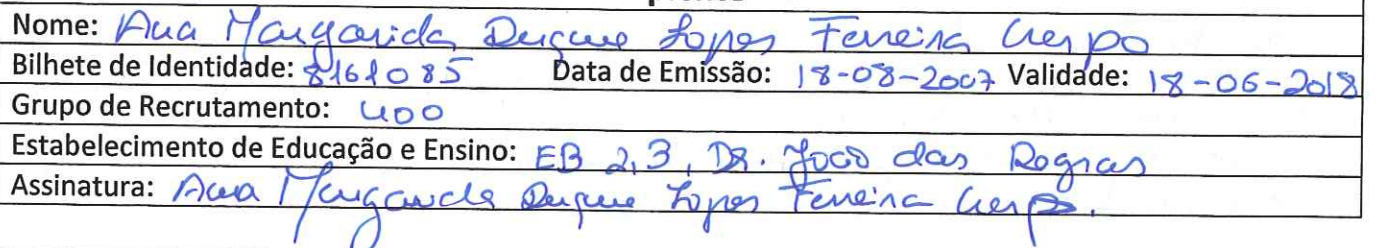 Nome: Ana Margarida Duque Lopes Ferreira Crespo
Bilhete de Identidade: 8161085 Data de Emissão: 18-08-2007 Validade: 18-06-2018
Grupo de Recrutamento: 400
Estabelecimento de Educação e Ensino: EB 2,3, Dr. João das Regras
Assinatura: Ana Margarida Duque Lopes Ferreira Crespo.